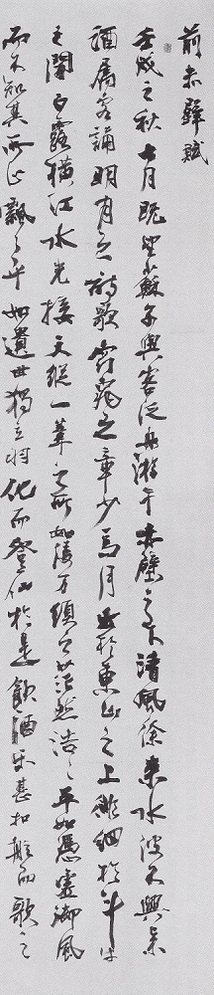 前赤壁賦
壬戌之秋七月既望蘇子與客泛舟游于赤壁之下清風徐来水波不興举
酒属客誦明月之詩歌窈窕之章少焉月出於東山之上徘徊於斗牛
之間白露橫江水光接天縱一葦之所如凌万頃之茫然浩々乎如憑虛御風
而不知其所止飄々乎如遺世獨立羽化而登仙於是飲酒樂甚扣舷而歌之